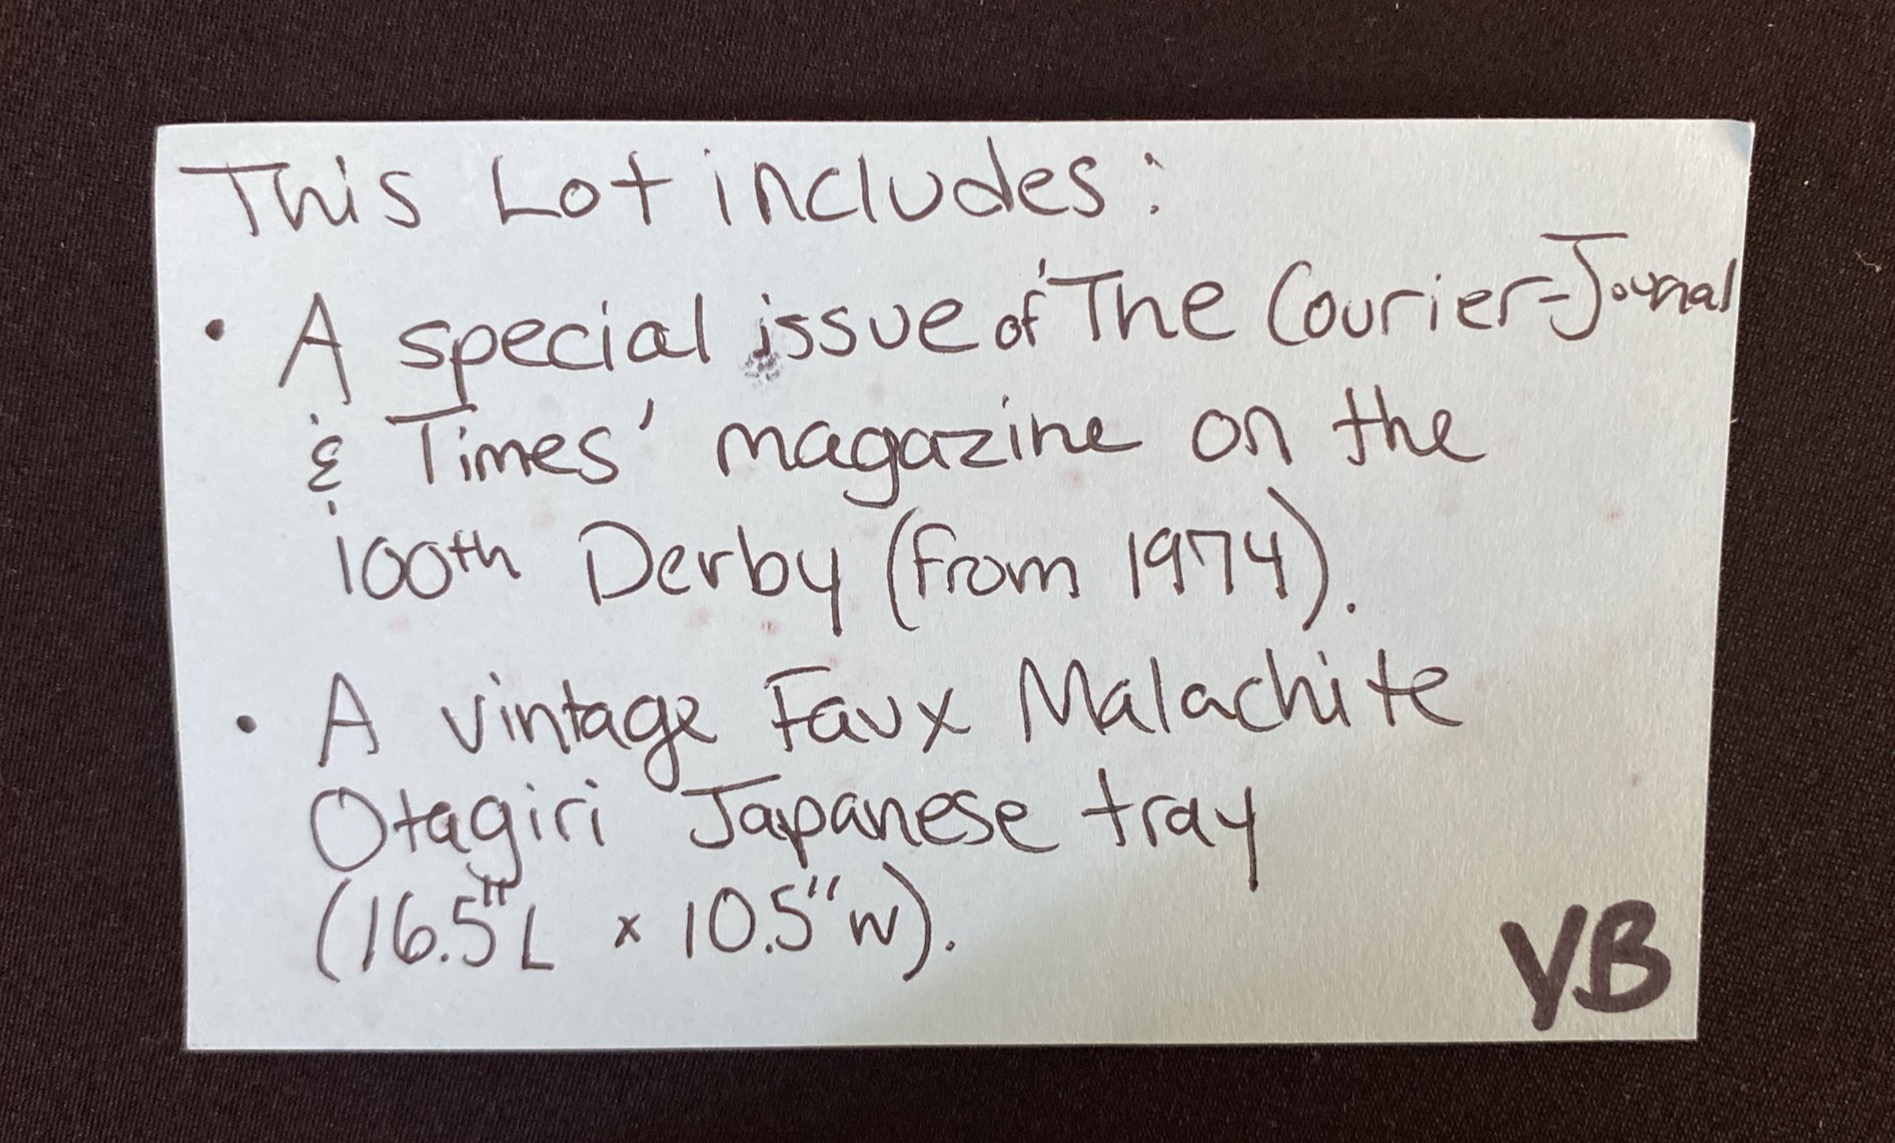 This Lot includes:
• A special issue of 'The Courier-Journal
& Times' magazine on the
100th Derby (from 1974).
• A vintage Faux Malachite
Otagiri Japanese tray
(16.5"L x 10.5"W).
YB